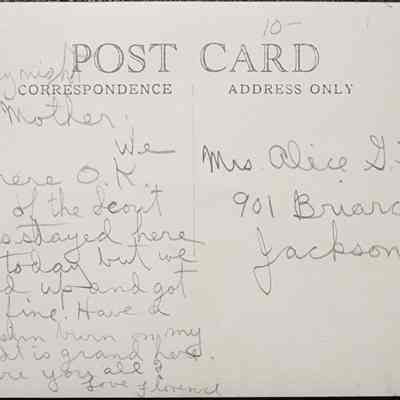 10-
POST CARD
CORRESPONDENCE
ADDRESS ONLY
y night
Mother.
We
here O.K.
of the Scout
s stayed here
today but we
d up and got
fine. Have a
burn on my
It is grand here.
are you all?
Love Florence
Mrs. Alice G.
901 Briar
Jackson